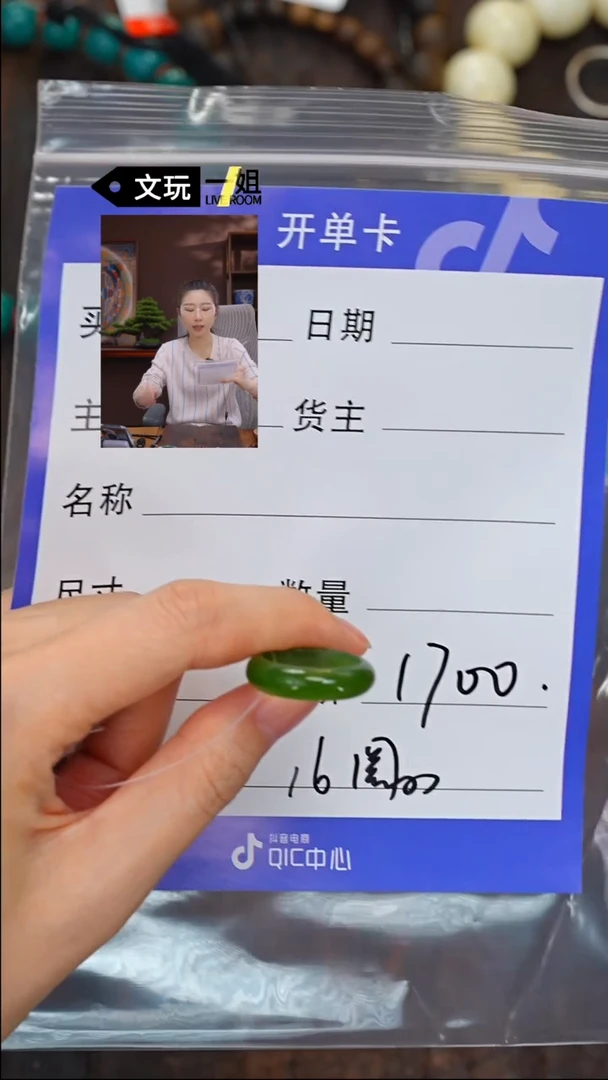 文玩一姐
LIVE ROOM
开单卡
日期
货主
名称
尺寸
数量
1700.
16圈的
抖音电商
QIC中心